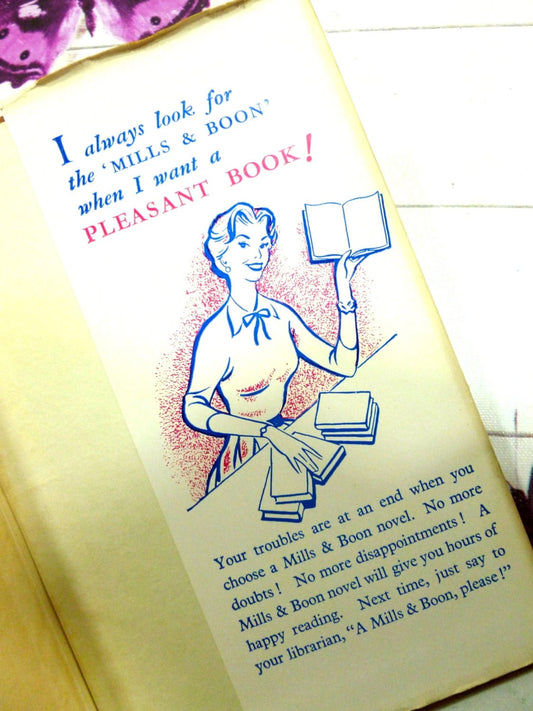 I always look for
the ‘MILLS & BOON’
when I want a
PLEASANT BOOK!
Your troubles are at an end when you
choose a Mills & Boon novel. No more
doubts! No more disappointments! A
Mills & Boon novel will give you hours of
happy reading. Next time, just say to
your librarian, “A Mills & Boon, please!”